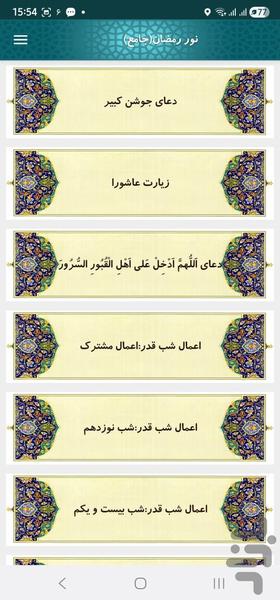 15:54 ۶ 77
نور رمضان(جامع)
دعای جوشن کبیر
زیارت عاشورا
دعای اَللّهُمَّ اَدْخِلْ عَلى اَهْلِ الْقُبُورِ السُّرُورَ
اعمال شب قدر:اعمال مشترک
اعمال شب قدر:شب نوزدهم
اعمال شب قدر:شب بیست و یکم